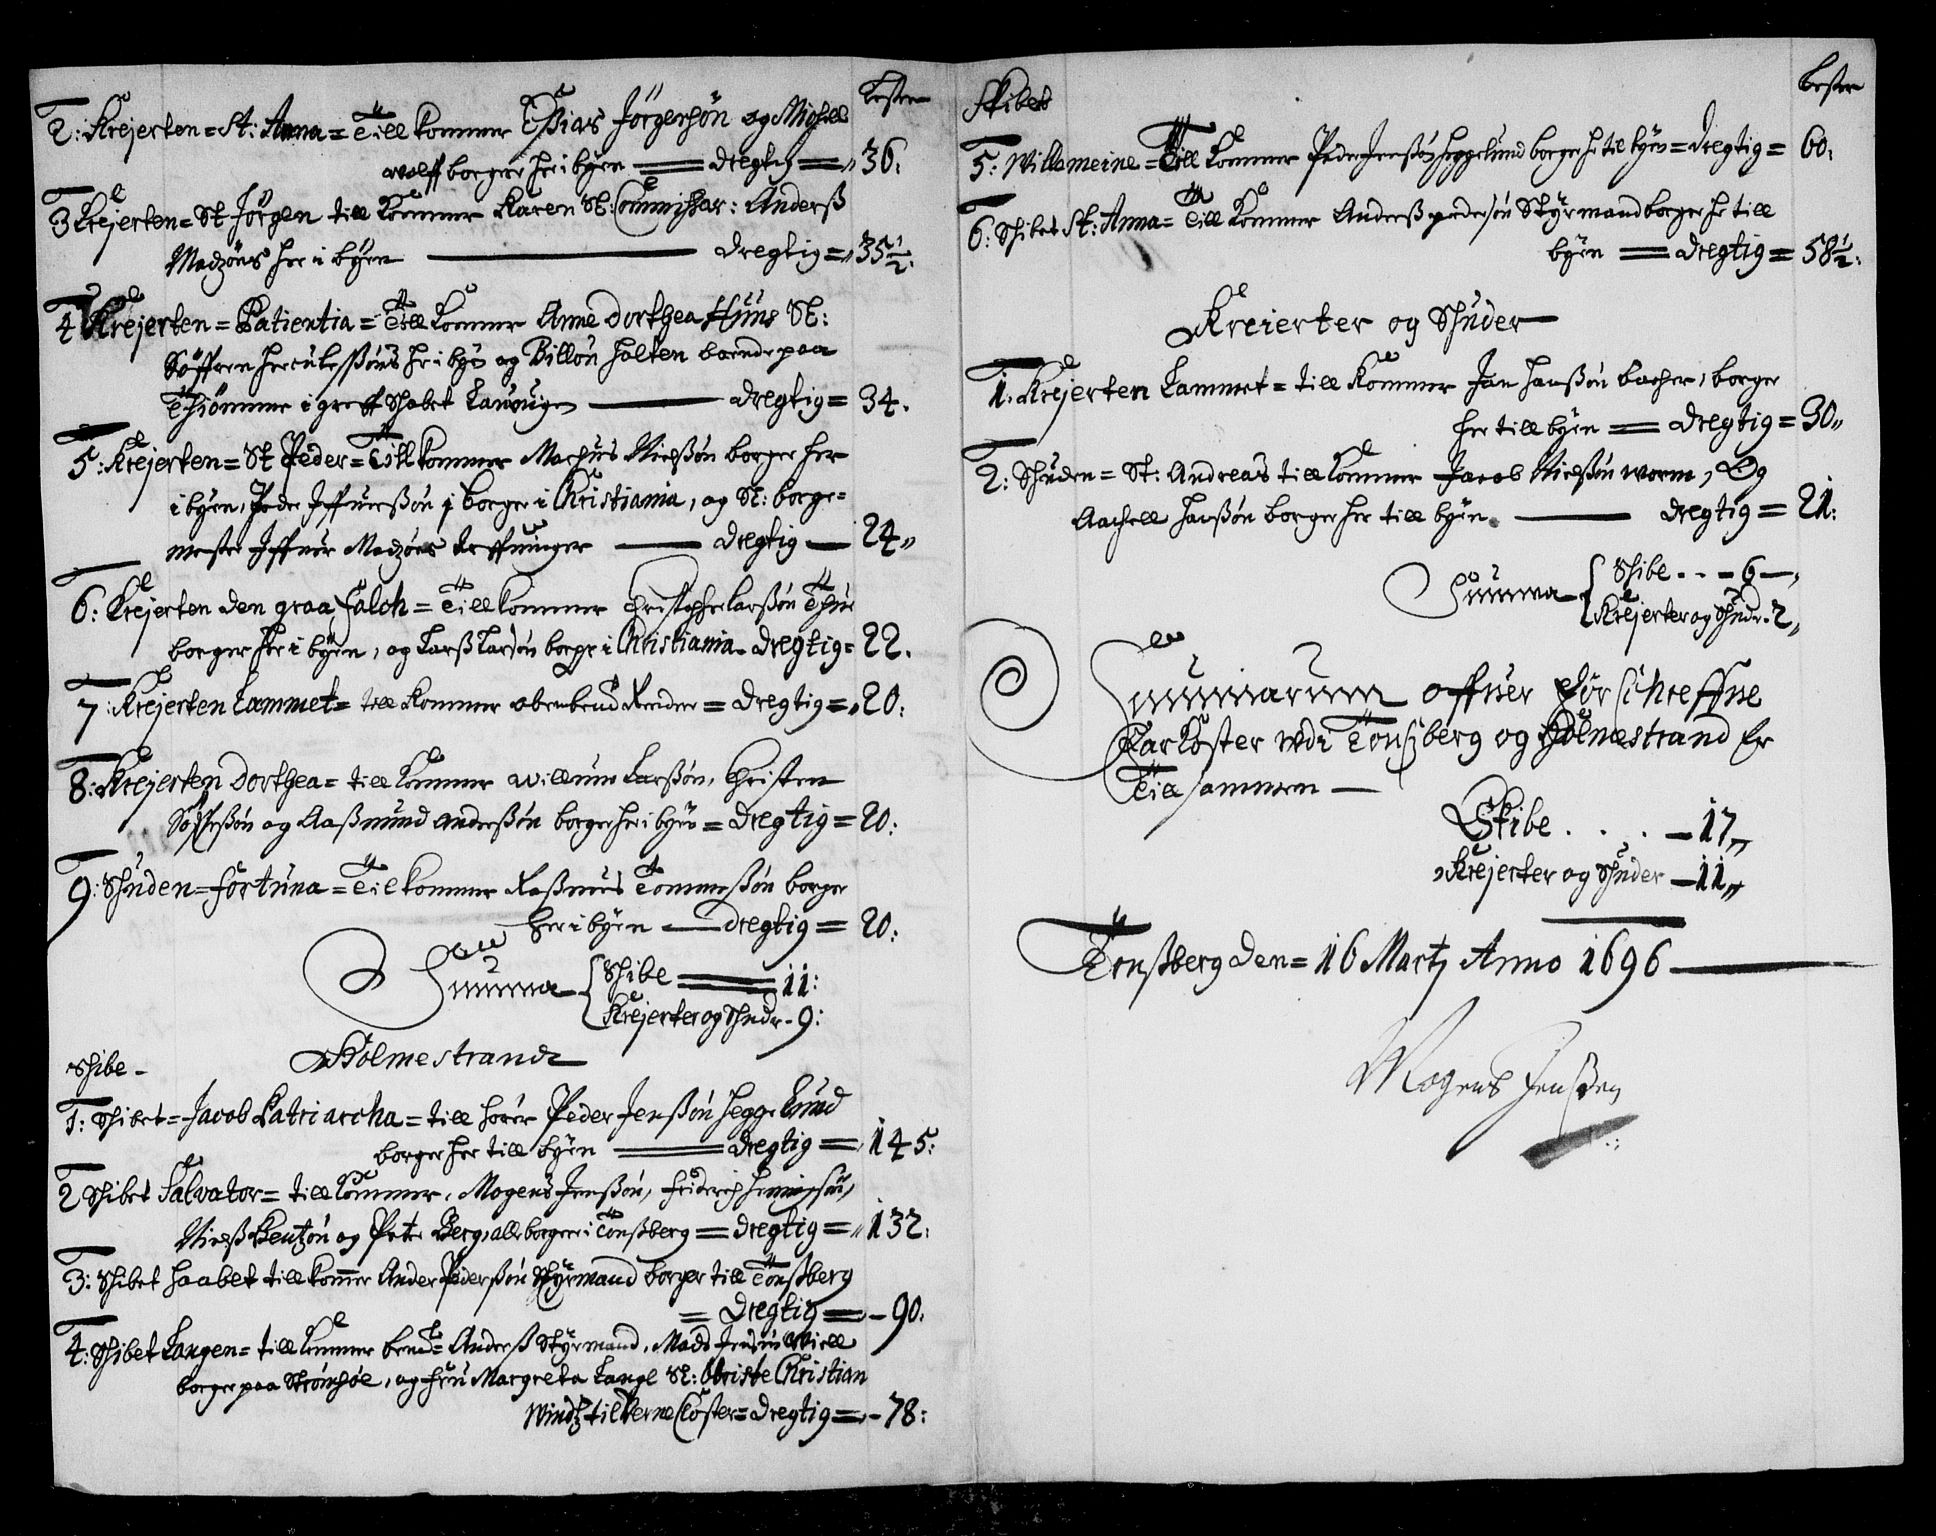 Lester
2: Krejerten = St: Anna = Till kommer Tobias Jörgensön og Michell
wolff borgere her i byen == dregtig = 36:
3 Krejerten = St Jörgen till kommer Karen Sl: Commissar: Anderß
Madzöns her i byen — dregtig = 35½:
4 Krejerten = Patientia = Till kommer Anne Dorthea Huus Sl:
Söffren Herculessöns her i byen og Billou Holten boende paa
Thiömmer i greffskabet Laurvigen — dregtig = 34.
5: Krejerten = St Peder = Till kommer Machus Nielßön borger her
i byen, Peder Iffuerßön borger i Christiania, og Sl: borge=
mester Iffuer Madzöns Arffuinger — dregtig — 24"
6: Krejerten den graa falch = Till kommer Christopher Larßön Thue
borger her i byen, og Larß Larsön borger i Christiania - dregtig = 22.
7: Krejerten Lammet = till kommer = dregtig = 20:
8: Krejerten Dorthea = till kommer willum Larßön, Christen
og Aaßmund anderßön borger her i byen = dregtig = 20:
9: Skuden = fortuna = Till kommer Raßmus Tommeßön borger
her i byen — dregtig = 20:
Summa { Skibe == 11:
Krejerter og Skuder - 9:
Holmestrand
Skibe -
1: Skibet = Jacob Patriarcha = till hörer Peder Jenßön Heggelund
borger her till byen == dregtig = 145:
2 Skibet Salvator = till kommer, Mogens Jenßön, friderich
Nielß Bentzön og Peter Berg, alle borgere i Tonßberg = dregtig = 132:
3: Skibet Haabet till kommer Ander Pederßön Styrmand borger till Tonßberg
= Dregtig = - 90:
4: Skibet Langen = till kommer bemt= Anderß Styrmand, Madß
borger paa Strömsöe, og fru Margreta Lange Sl: Obriste Christian
Windtz til Verne Closter = dregtig = - 78:
Skibet
Lester
5: Willemeine = Till kommer Peder Jenßön Heggelund borger her til byen = dregtig = 60:
6: Skibet St: Anna = Till kommer Anderß pedersön Styrmand borger her till
byen == dregtig = 58½:
Kreierter og Skuder
1. Krejerten Lammet = till kommer Jan Hanßön bacher, borger
her till byen = dregtig = 30"
2: Skuden = St: Andreas till kommer Jacob Nielßön worm, Og
Aachell Hanßön borger her till byen. — dregtig = 21:
Summa { Skibe . . - 6 —,
Krejerter og Skuder. 2,
Summarum offuer forschreffne
Farkoster wdi Tonsberg og Holmestrand Er
Till sammen —
Skibe . . . — 17"
Krejerter og Skuder — 11"
Tonßberg den = 16 Martj Anno 1696 —
Mogens Jenßen